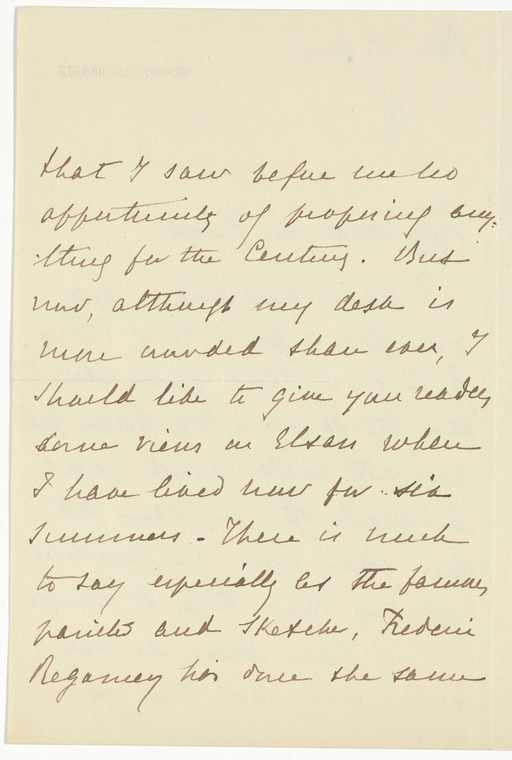 that I saw before me no
opportunity of preparing any-
thing for the Century. But
now, although my desk is
more crowded than ever, I
should like to give your readers
some views on Elsass where
I have lived now for six
summers - There is much
to say especially as the famous
painter and sketcher, Frederic
Regamey has done the same